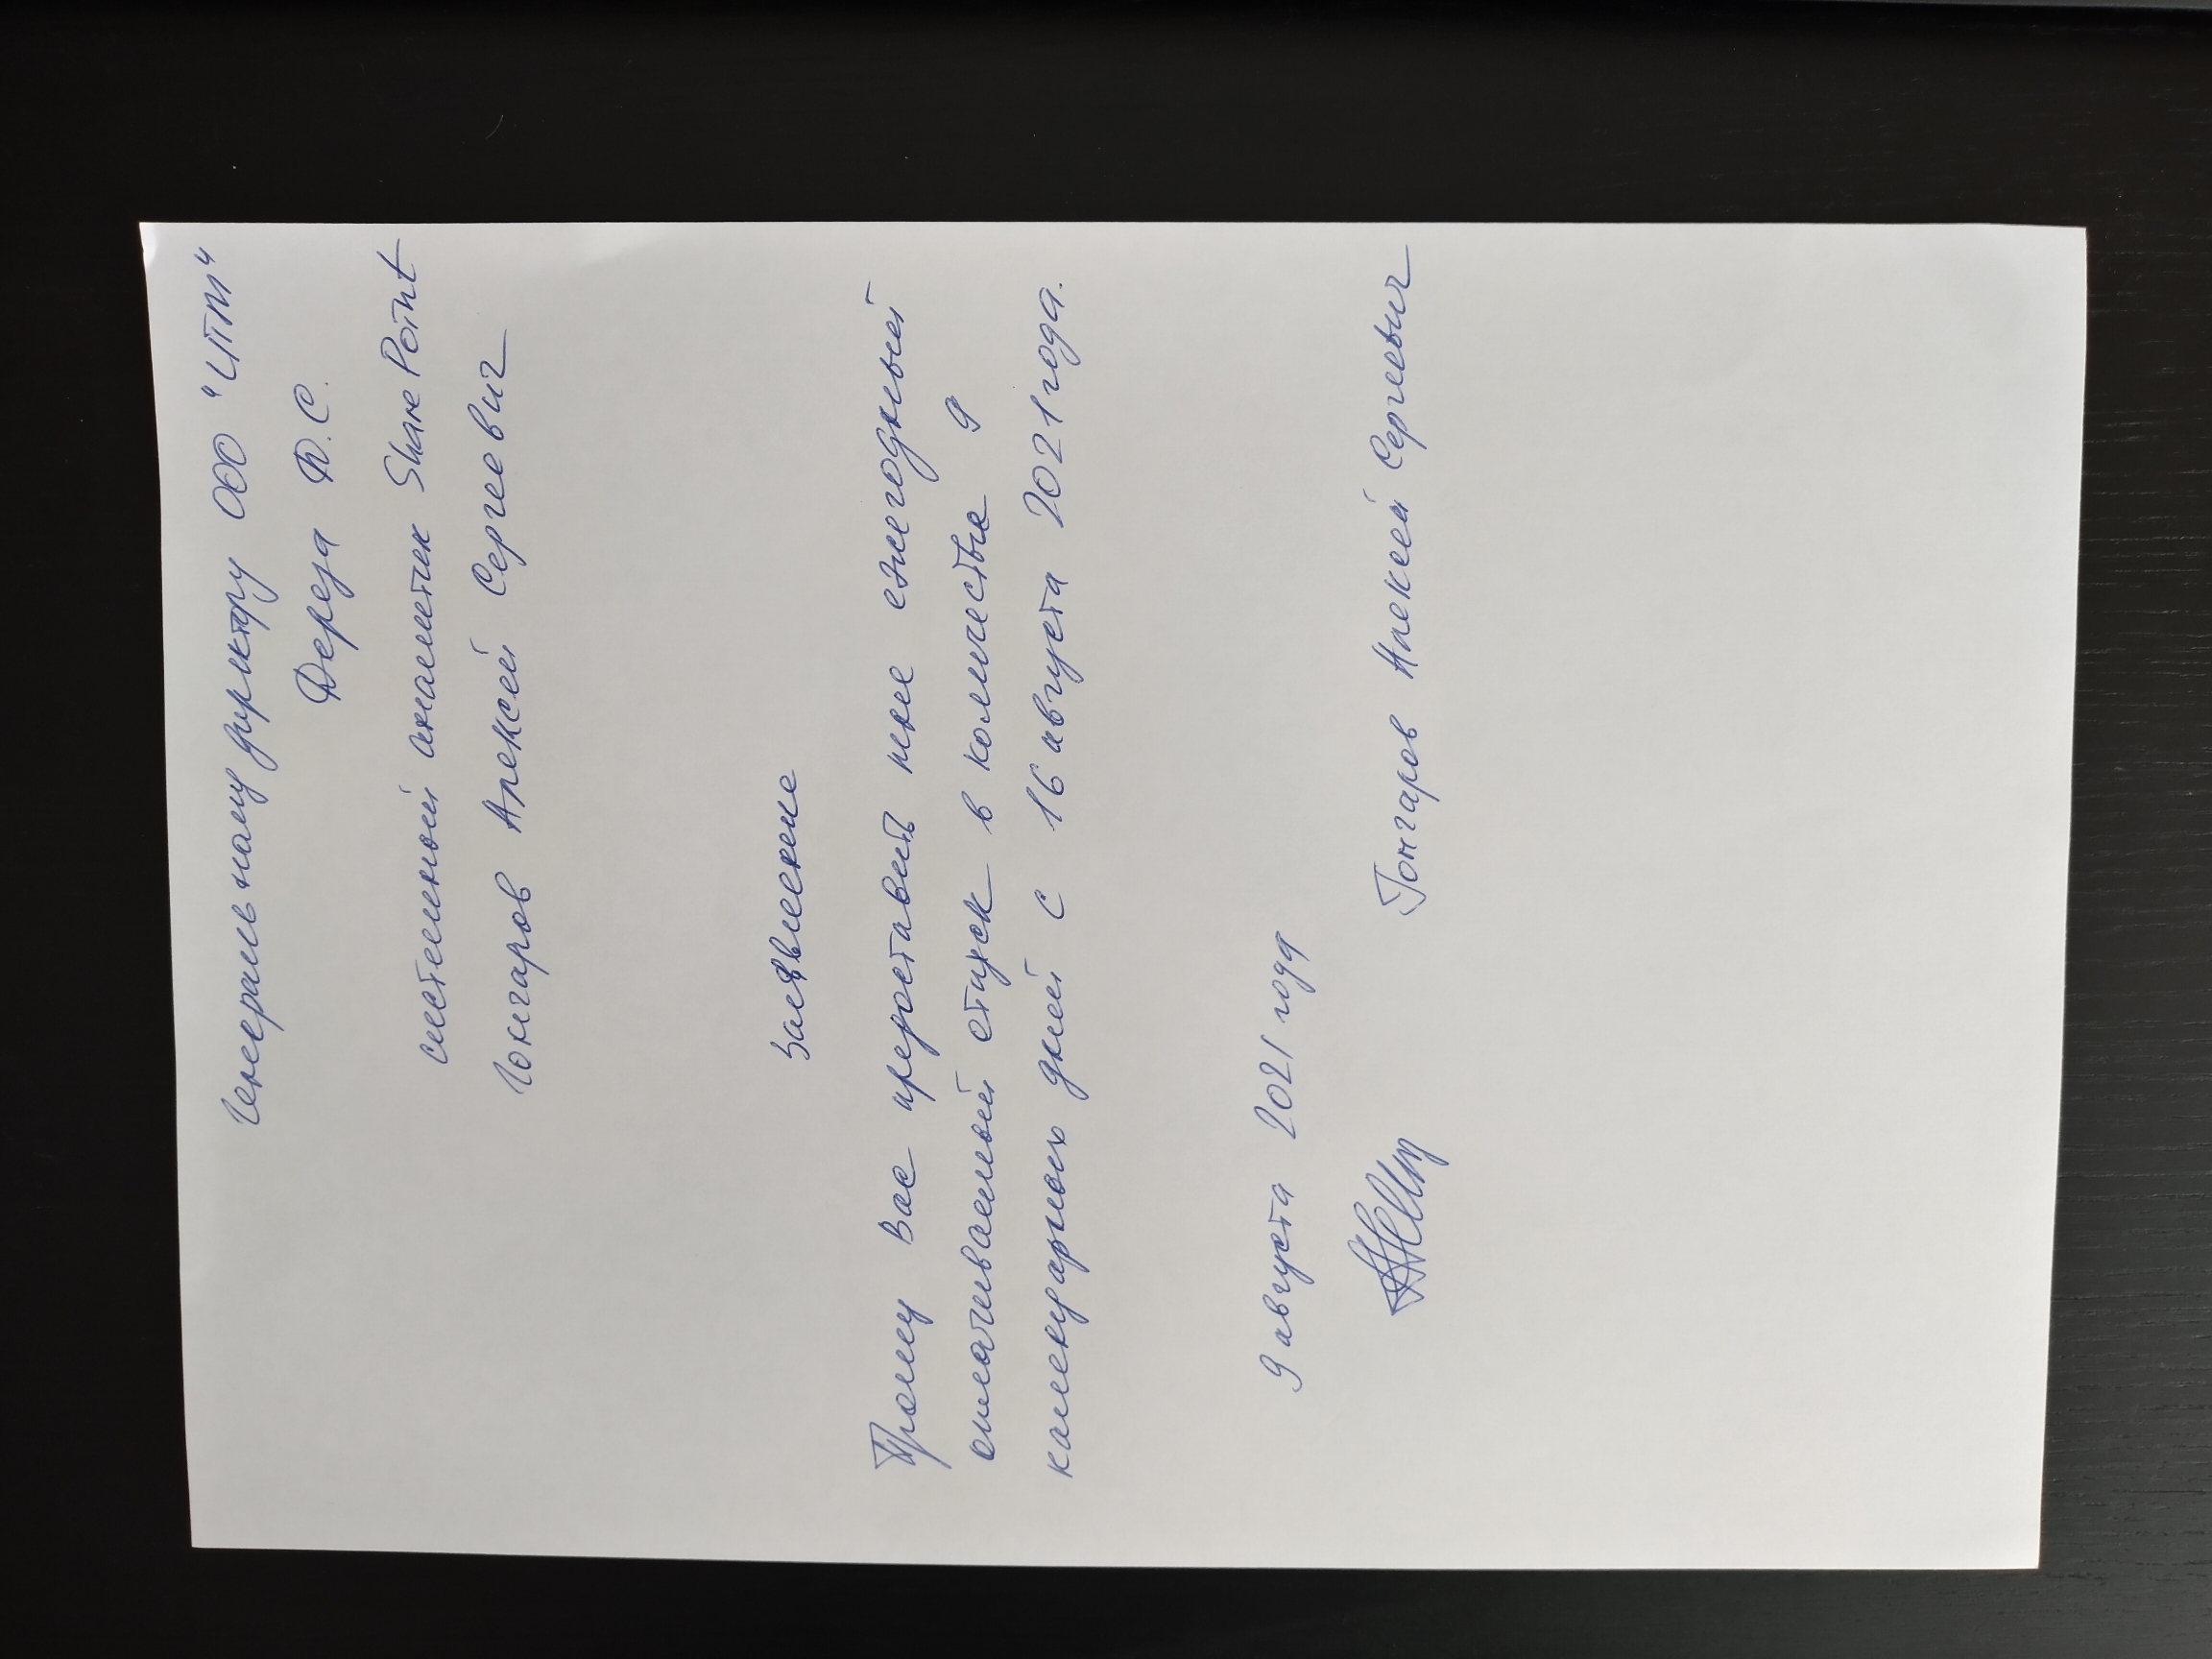 Генеральному директору ООО "ИТП"
Дереза Д.С.
системный аналитик SharePoint
Гончаров Алексей Сергеевич
Заявление
Прошу вас предоставить мне ежегодный
оплачиваемый отпуск в количестве 9
календарных дней с 16 августа 2021 года.
9 августа 2021 года
Гончаров Алексей Сергеевич